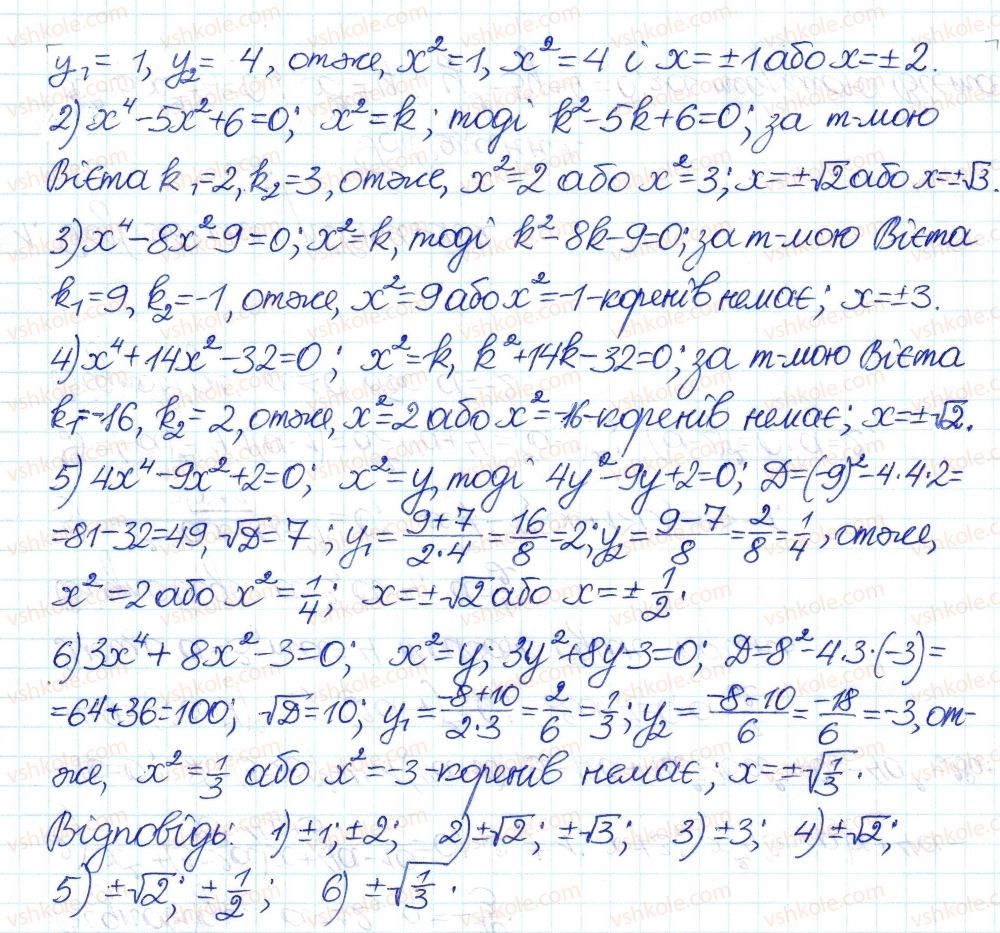 y₁ = 1, y₂ = 4, отже, x² = 1, x² = 4 і x = ±1 або x = ±2.
2) x⁴ − 5x² + 6 = 0; x² = k; тоді k² − 5k + 6 = 0; за т-мою
Вієта k₁ = 2, k₂ = 3, отже, x² = 2 або x² = 3; x = ±√2 або x = ±√3.
3) x⁴ − 8x² − 9 = 0; x² = k, тоді k² − 8k − 9 = 0; за т-мою Вієта
k₁ = 9, k₂ = −1, отже, x² = 9 або x² = −1 – коренів немає; x = ±3.
4) x⁴ + 14x² − 32 = 0; x² = k, k² + 14k − 32 = 0; за т-мою Вієта
k₁ = −16, k₂ = 2, отже, x² = 2 або x² = −16 – коренів немає; x = ±√2.
5) 4x⁴ − 9x² + 2 = 0; x² = y, тоді 4y² − 9y + 2 = 0; Д = (−9)² − 4·4·2 =
= 81 − 32 = 49, √Д = 7; y₁ = (9+7)/(2·4) = 16/8 = 2; y₂ = (9−7)/8 = 2/8 = 1/4, отже,
x² = 2 або x² = 1/4; x = ±√2 або x = ±1/2.
6) 3x⁴ + 8x² − 3 = 0; x² = y; 3y² + 8y − 3 = 0; Д = 8² − 4·3·(−3) =
= 64 + 36 = 100; √Д = 10; y₁ = (−8+10)/(2·3) = 2/6 = 1/3; y₂ = (−8−10)/6 = −18/6 = −3, от-
же, x² = 1/3 або x² = −3 – коренів немає; x = ±√(1/3).
Відповідь: 1) ±1; ±2; 2) ±√2; ±√3; 3) ±3; 4) ±√2;
5) ±√2; ±1/2; 6) ±√(1/3).